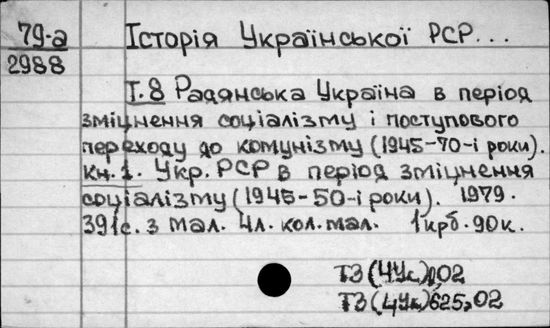 79-а Історія Української РСР...
2988
Т.8 Радянська Україна в період
зміцнення соціалізму і поступового
переходу до комунізму (1945-70-і роки).
Кн.1. Укр. РСР в період зміцнення
соціалізму (1945-50-і роки). 1979.
391с. з мал. 4л. кол. мал. 1крб. 90к.
Т3(4Ук)0,02
Т3(4Ук)625,02